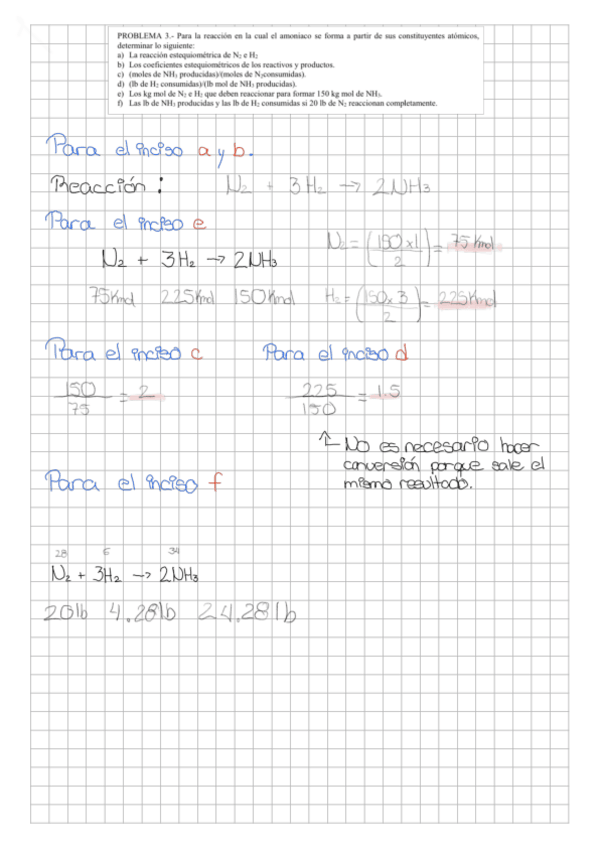 PROBLEMA 3.- Para la reacción en la cual el amoniaco se forma a partir de sus constituyentes atómicos,
determinar lo siguiente:
a) La reacción estequiométrica de N₂ e H₂
b) Los coeficientes estequiométricos de los reactivos y productos.
c) (moles de NH₃ producidas)/(moles de N₂consumidas).
d) (lb de H₂ consumidas)/(lb mol de NH₃ producidas).
e) Los kg mol de N₂ e H₂ que deben reaccionar para formar 150 kg mol de NH₃.
f) Las lb de NH₃ producidas y las lb de H₂ consumidas si 20 lb de N₂ reaccionan completamente.
Para el inciso a y b.
Reacción: N₂ + 3H₂ → 2NH₃
Para el inciso e
N₂ = (150 x 1 / 2) = 75 Kmol
N₂ + 3H₂ → 2NH₃
75Kmol 225Kmol 150Kmol H₂ = (150 x 3 / 2) = 225Kmol
Para el inciso c Para el inciso d
150 / 75 = 2 225 / 150 = 1.5
↑ No es necesario hacer
conversión porque sale el
mismo resultado.
Para el inciso f
28 6 34
N₂ + 3H₂ → 2NH₃
20lb 4.28lb 24.28lb